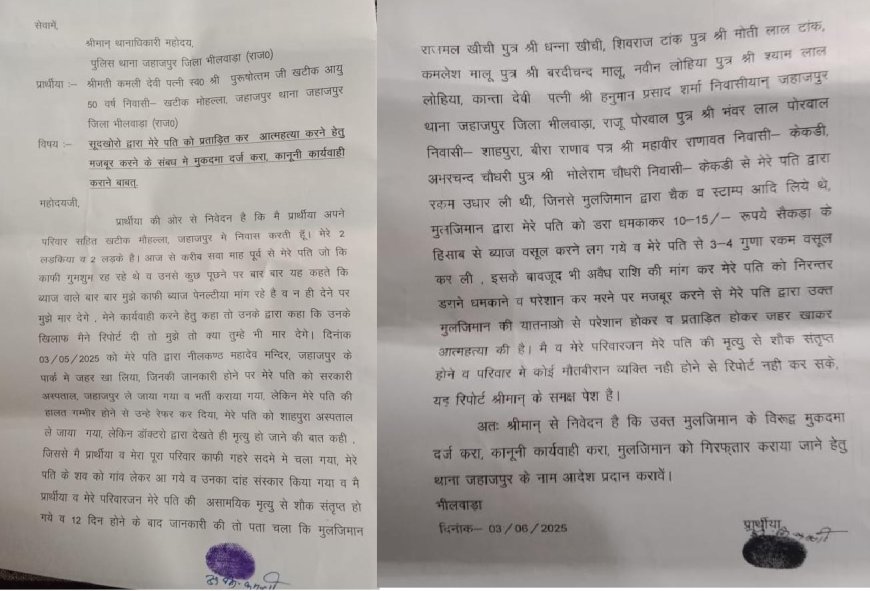 सेवामें,
श्रीमान् थानाधिकारी महोदय,
पुलिस थाना जहाजपुर जिला भीलवाड़ा (राज0)
प्रार्थीया :– श्रीमती कमली देवी पत्नी स्व0 श्री पुरूषोत्तम जी खटीक आयु
50 वर्ष निवासी– खटीक मोहल्ला, जहाजपुर थाना जहाजपुर
जिला भीलवाड़ा (राज0)
विषय :– सूदखोरो द्वारा मेरे पति को प्रताड़ित कर आत्महत्या करने हेतु
मजबूर करने के संबध मे मुकदमा दर्ज करा, कानूनी कार्यवाही
कराने बाबत्
महोदयजी,
प्रार्थीया की ओर से निवेदन है कि मै प्रार्थीया अपने
परिवार सहित खटीक मौहल्ला, जहाजपुर मे निवास करती हूँ। मेरे 2
लड़किया व 2 लडके है। आज से करीब सवा माह पूर्व से मेरे पति जो कि
काफी गुमशुम रह रहे थे व उनसे कुछ पूछने पर बार बार यह कहते कि
ब्याज वाले बार बार मुझे काफी ब्याज पेनल्टीया मांग रहे है व न ही देने पर
मुझे मार देगे , मेने कार्यवाही करने हेतु कहा तो उनके द्वारा कहा कि उनके
खिलाफ मैने रिपोर्ट दी तो मुझे तो क्या तुम्हे भी मार देगे। दिनांक
03/05/2025 को मेरे पति द्वारा नीलकण्ठ महादेव मन्दिर, जहाजपुर के
पार्क मे जहर खा लिया, जिनकी जानकारी होने पर मेरे पति को सरकारी
अस्पताल, जहाजपुर ले जाया गया व भर्ती कराया गया, लेकिन मेरे पति की
हालत गम्भीर होने से उन्हे रेफर कर दिया, मेरे पति को शाहपुरा अस्पताल
ले जाया गया, लेकिन डॉक्टरो द्वारा देखते ही मृत्यु हो जाने की बात कही ,
जिससे मै प्रार्थीया व मेरा पूरा परिवार काफी गहरे सदमे मे चला गया, मेरे
पति के शव को गांव लेकर आ गये व उनका दांह संस्कार किया गया व मै
प्रार्थीया व मेरे परिवारजन मेरे पति की असामयिक मृत्यु से शौक संतृप्त हो
गये व 12 दिन होने के बाद जानकारी की तो पता चला कि मुलजिमान
राजमल खीची पुत्र श्री धन्ना खीची, शिवराज टांक पुत्र श्री मोती लाल टांक,
कमलेश मालू पुत्र श्री बरदीचन्द मालू, नवीन लोहिया पुत्र श्री श्याम लाल
लोहिया, कान्ता देवी पत्नी श्री हनुमान प्रसाद शर्मा निवासीयान् जहाजपुर
थाना जहाजपुर जिला भीलवाड़ा, राजू पोरवाल पुत्र श्री भंवर लाल पोरवाल
निवासी– शाहपुरा, बीरा राणाव पत्र श्री महावीर राणावत निवासी– केकडी,
अमरचन्द चौधरी पुत्र श्री भोलेराम चौधरी निवासी– केकडी से मेरे पति द्वारा
रकम उधार ली थी, जिनसे मुलजिमान द्वारा चैक व स्टाम्प आदि लिये थे,
मुलजिमान द्वारा मेरे पति को डरा धमकाकर 10–15/– रूपये सैकड़ा के
हिसाब से ब्याज वसूल करने लग गये व मेरे पति से 3–4 गुणा रकम वसूल
कर ली , इसके बावजूद भी अवैध राशि की मांग कर मेरे पति को निरन्तर
डराने धमकाने व परेशान कर मरने पर मजबूर करने से मेरे पति द्वारा उक्त
मुलजिमान की यातनाओ से परेशान होकर व प्रताड़ित होकर जहर खाकर
आत्महत्या की है। मै व मेरे परिवारजन मेरे पति की मृत्यु से शौक संतृप्त
होने व परिवार मे कोई मौतबीरान व्यक्ति नही होने से रिपोर्ट नही कर सके,
यह रिपोर्ट श्रीमान् के समक्ष पेश है।
अतः श्रीमान् से निवेदन है कि उक्त मुलजिमान के विरूद्ध मुकदमा
दर्ज करा, कानूनी कार्यवाही करा, मुलजिमान को गिरफ्तार कराया जाने हेतु
थाना जहाजपुर के नाम आदेश प्रदान करावें।
भीलवाड़ा
दिनांक– 03/06/2025
प्रार्थीया